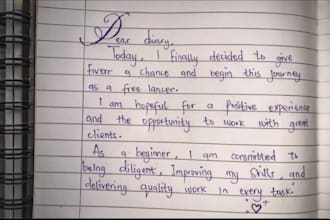 Dear diary,
Today, I finally decided to give
fiverr a chance and begin this journey
as a free lancer.
I am hopeful for a positive experience
and the opportunity to work with great
clients.
As a beginner, I am committed to
being diligent, Improving my skills, and
delivering quality work in every task.